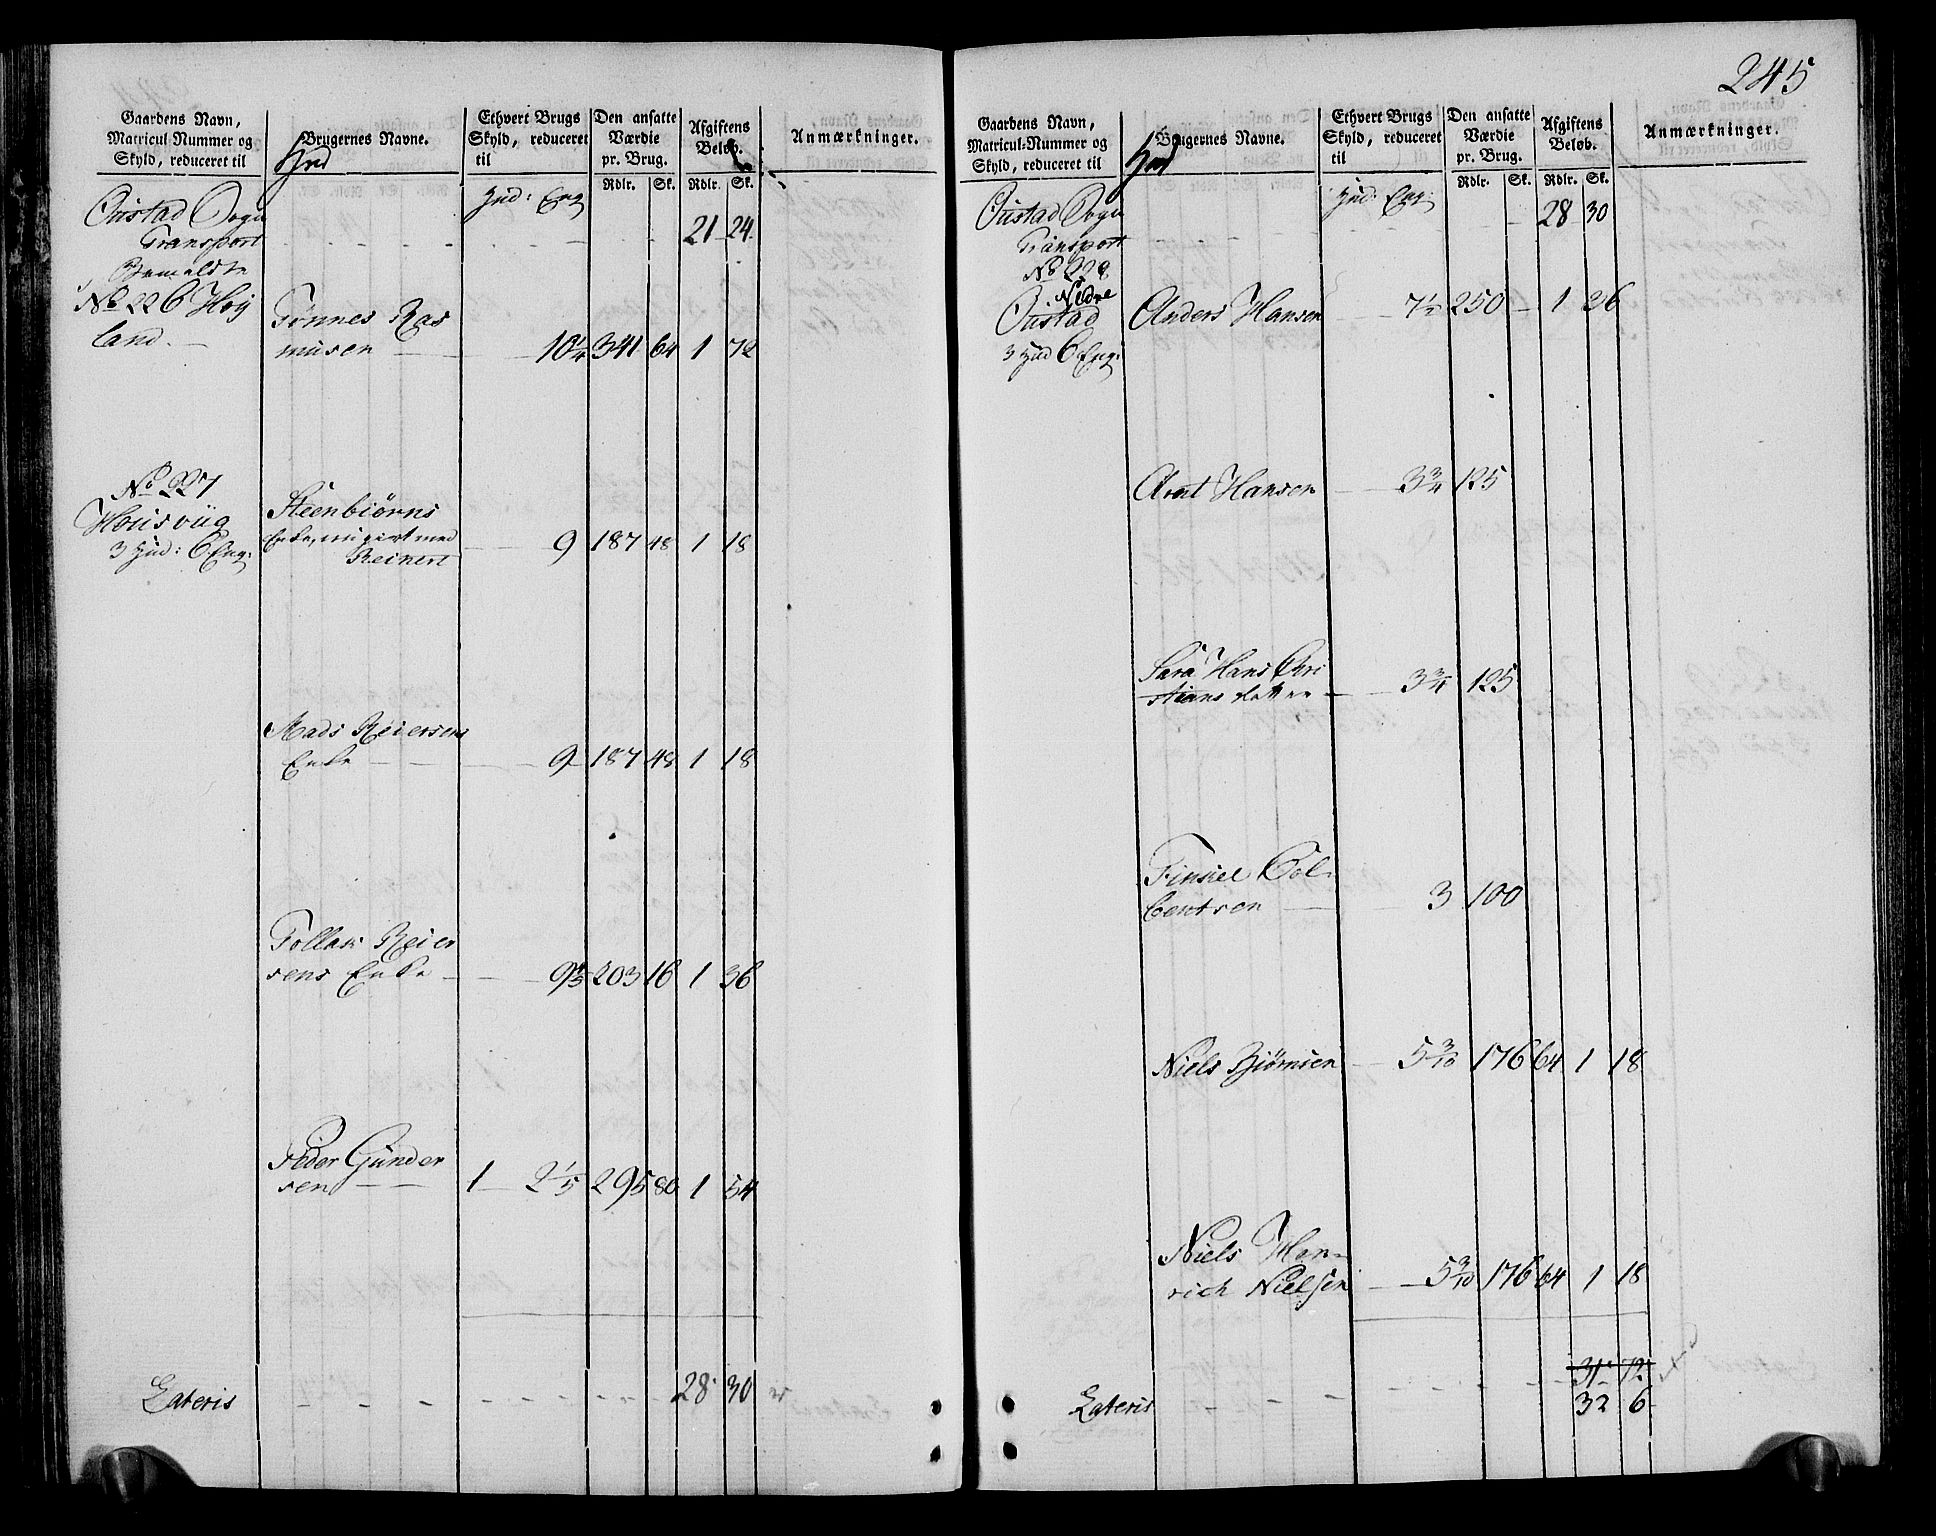 245
Gaardens Navn, Matricul-Nummer og Skyld, reduceret til
Brugernes Navne.
Ethvert Brugs Skyld, reduceret til
Den ansatte Værdie pr. Brug.
Afgiftens Beløb.
Anmærkninger.
Rdlr. Sk. Rdlr. Sk.
Hud: Eng
Oustad Sogn
Transport - - - 21 24
Bemeldte
No 226 Høy
land.
Tønnes Ras
musen — 10 1/4 341 64 1 72
No 227
Housviig
3 Hud: 6 Eng:
Steenbiørns
Enke, nu givt med
Reinert — 9 187 48 1 18
Mads Reiersens
Enke — 9 187 48 1 18
Tollak Reier
sens Enke — 203 16 1 36
Peder Gunder
sen — 1 2 1/5 295 80 1 54
Lateris - - - 28 30
Gaardens Navn, Matricul-Nummer og Skyld, reduceret til
Brugernes Navne.
Ethvert Brugs Skyld, reduceret til
Den ansatte Værdie pr. Brug.
Afgiftens Beløb.
Anmærkninger.
Rdlr. Sk. Rdlr. Sk.
Hud: Eng
Oustad Sogn
Transport - - - 28 30
No 228
Nedre
Oustad
3 Hud 6 Eng:
Anders Hansen — 7 1/2 250 — 1 36
Arnt Hansen — 3 3/4 125
Sara Hans Cri
stians datter — 3 3/4 125
Col
bentsen — 3 100
Niels Biørnsen — 5 3/10 176 64 1 18
Niels Hen
rich Nielsen — 5 3/10 176 64 1 18
31 72
Lateris - - - 32 6